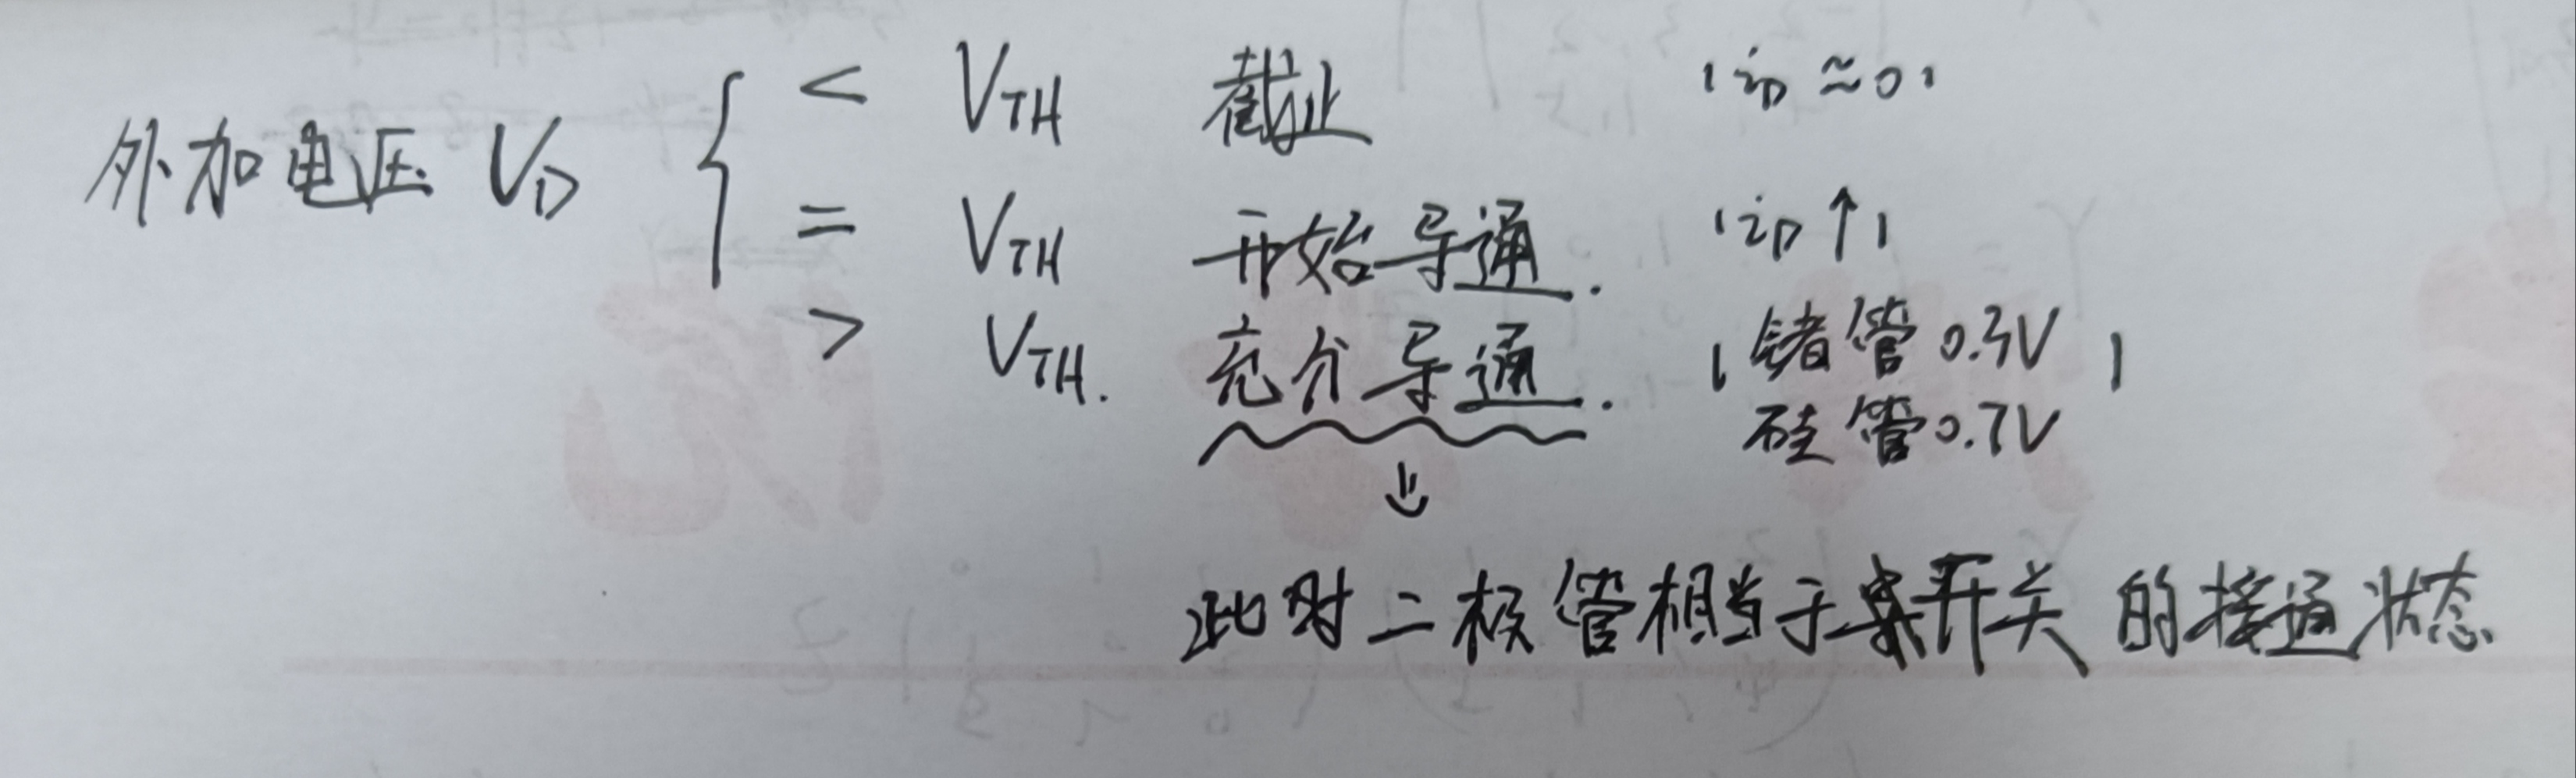 外加电压 VD { < VTH 截止 (iD ≈ 0)
= VTH 开始导通. (iD ↑)
> VTH. 充分导通. (锗管 0.3V
硅管 0.7V)
⇓
此时二极管相当于开关的接通状态